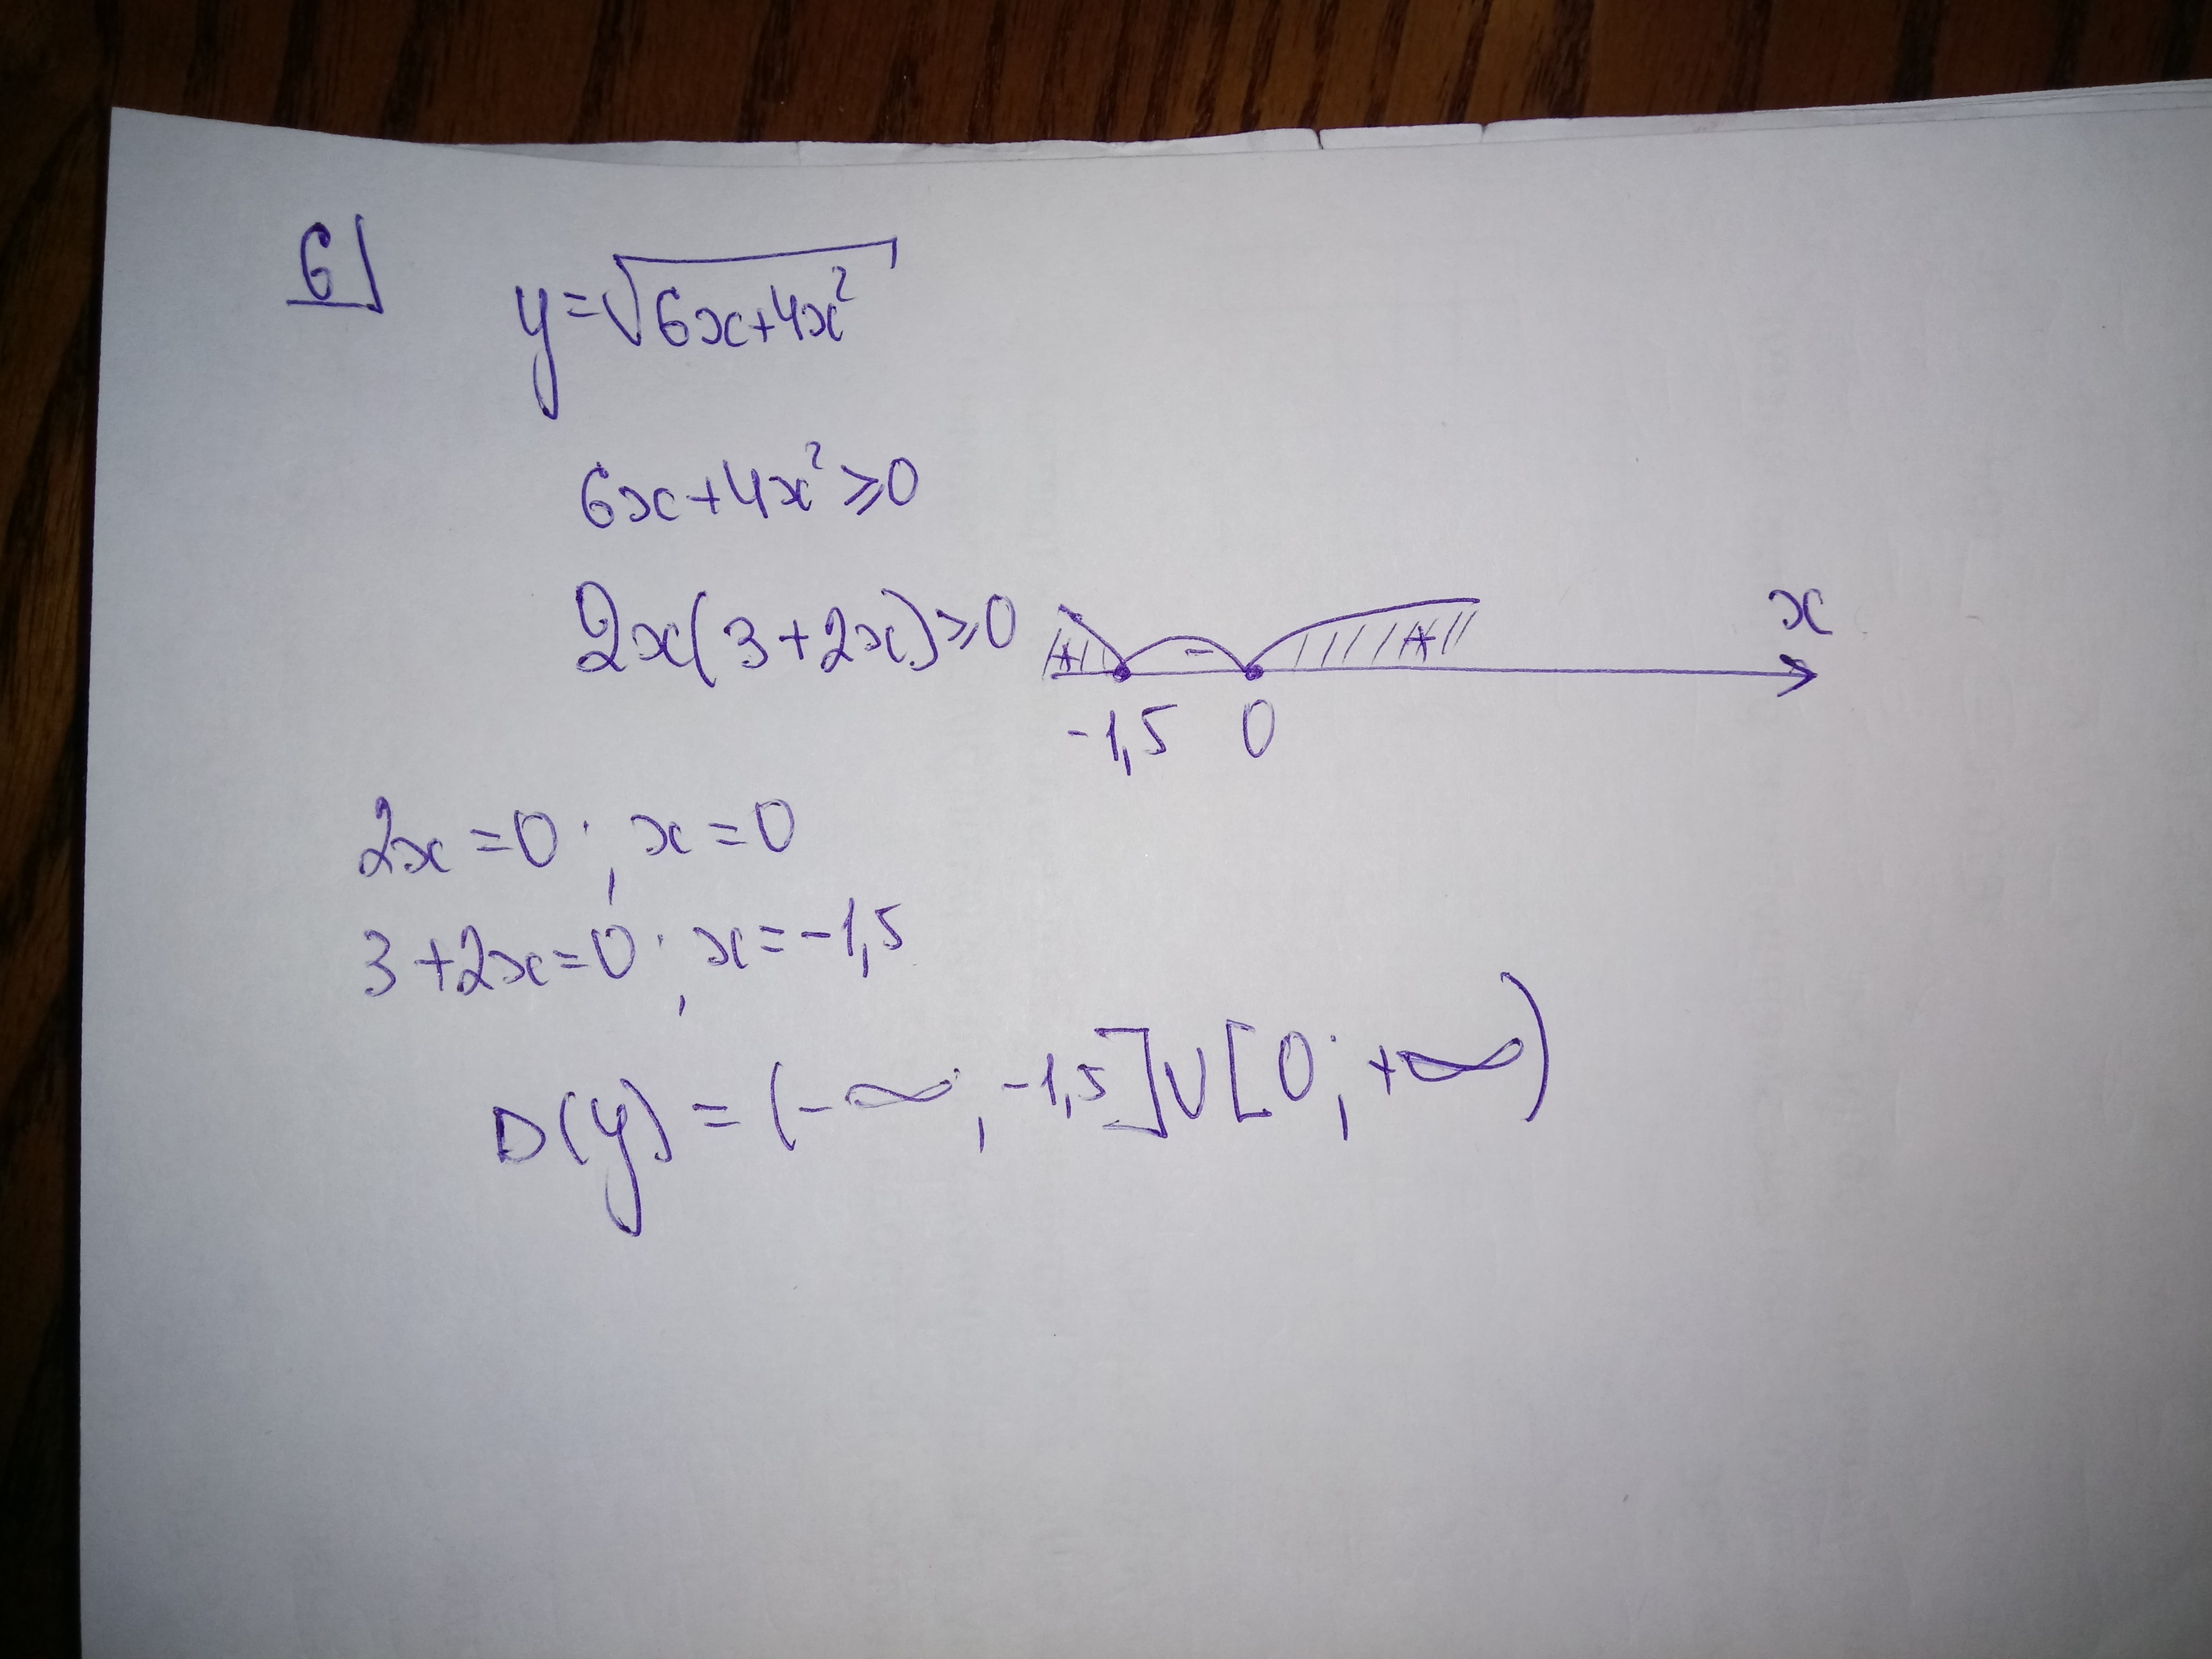 6
y=√6x+4x²
6x+4x²≥0
2x(3+2x)≥0
+ - + x
-1,5 0
2x=0; x=0
3+2x=0; x=-1,5
D(y)=(-∞;-1,5]U[0;+∞)